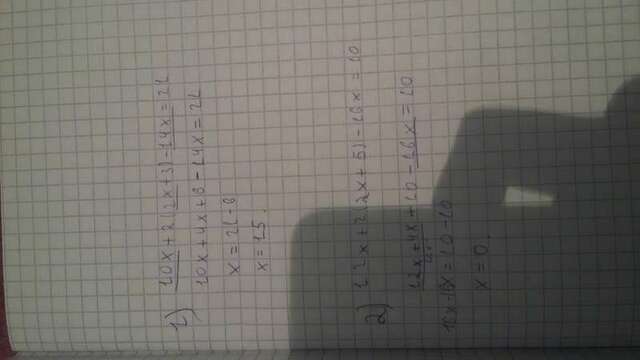 1) 10x+2(2x+3)-14x=21
10x+4x+6-14x=21
x=21-6
x=15.
2) 12x+2(2x+5)-16x=10
12x+4x+10-16x=10
16x-16x=10-10
x=0.